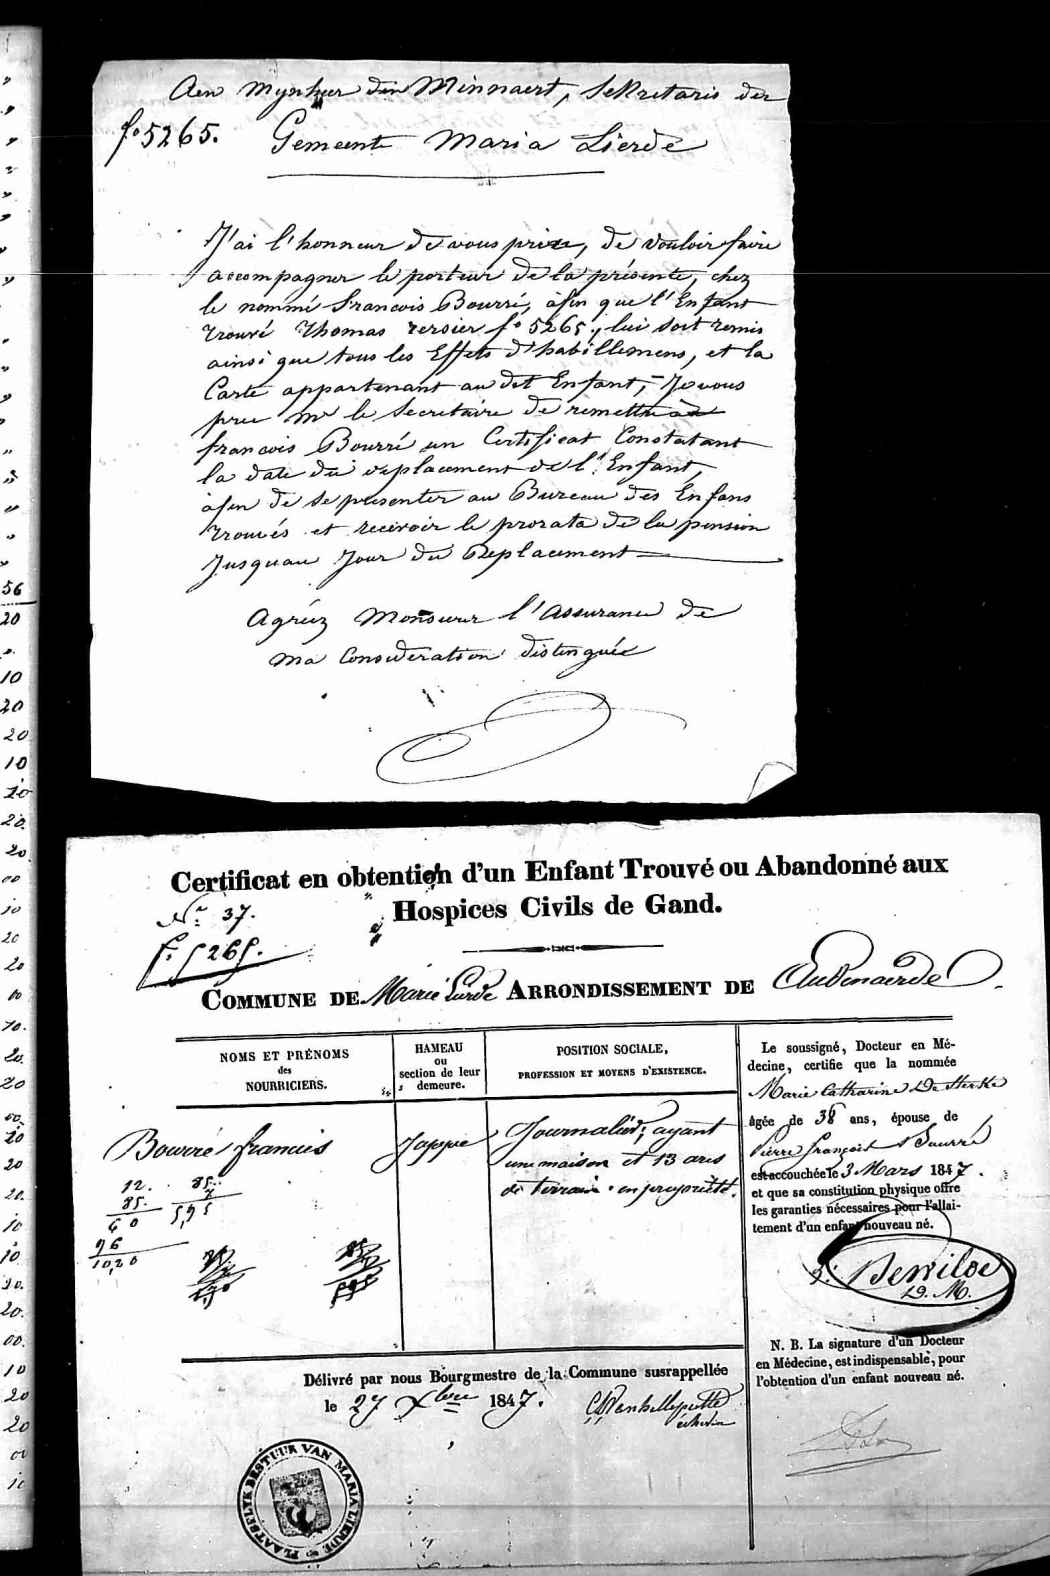 Aen Mynheer den Minnaert, Sekretaris der
fo 5265. Gemeente Maria Lierde
J'ai l'honneur de vous prier, de vouloir faire
accompagner le porteur de la présente, chez
le nommé francois Bourré, afin que l'Enfant
trouvé Thomas fo 5265, lui soit remis
ainsi que tous les Effets d'habillemens, et la
Carte appartenant au dit Enfant, Je vous
prie Mr le Secretaire de remettre à
francois Bourré un Certificat Constatant
la date du replacement de l'Enfant,
afin de se presenter au Bureau des Enfans
trouvés et recevoir le prorata de la pension
Jusquau Jour du Replacement
Agréez Monsieur l'assurance de
ma Consideration distinguée
Certificat en obtention d'un Enfant Trouvé ou Abandonné aux
Hospices Civils de Gand.
No 37.
fo 5265.
COMMUNE DE Marie Lierde ARRONDISSEMENT DE Audenaerde.
NOMS ET PRÉNOMS
des
NOURRICIERS.
HAMEAU
ou
section de leur
demeure.
POSITION SOCIALE,
PROFESSION ET MOYENS D'EXISTENCE.
Bourré francois
12. 85.
85. 7
60 5,95
96
10,20
Joppe
Journalier, ayant
une maison et 13 ares
de terrain en propriété.
Le soussigné, Docteur en Mé-
decine, certifie que la nommée
Marie Catharine De
âgée de 38 ans, épouse de
Pierre François
est accouchée le 3 Mars 1847.
et que sa constitution physique offre
les garanties nécessaires pour l'allai-
tement d'un enfant nouveau né.
D. M.
N. B. La signature d'un Docteur
en Médecine, est indispensable, pour
l'obtention d'un enfant nouveau né.
Délivré par nous Bourgmestre de la Commune susrappellée
le 27 Xbre 1847.
échevin
PLAATSELYK BESTUUR VAN MARIA LIERDE
56
20
10
20
20
10
10
20
20
00
10
20
20
00
10.
20.
20
00
20
20
20.
10
10
20.
20.
00.
10
20
20
00
10